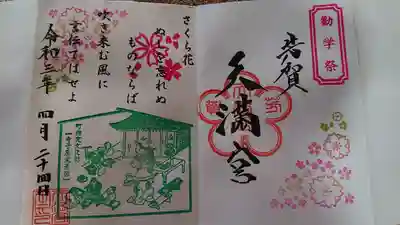 勧学祭
奉賀
天満宮
さくら花
ぬしを忘れぬ
ものならば
吹き来む風に
言伝てはせよ
令和三年 四月 二十四日